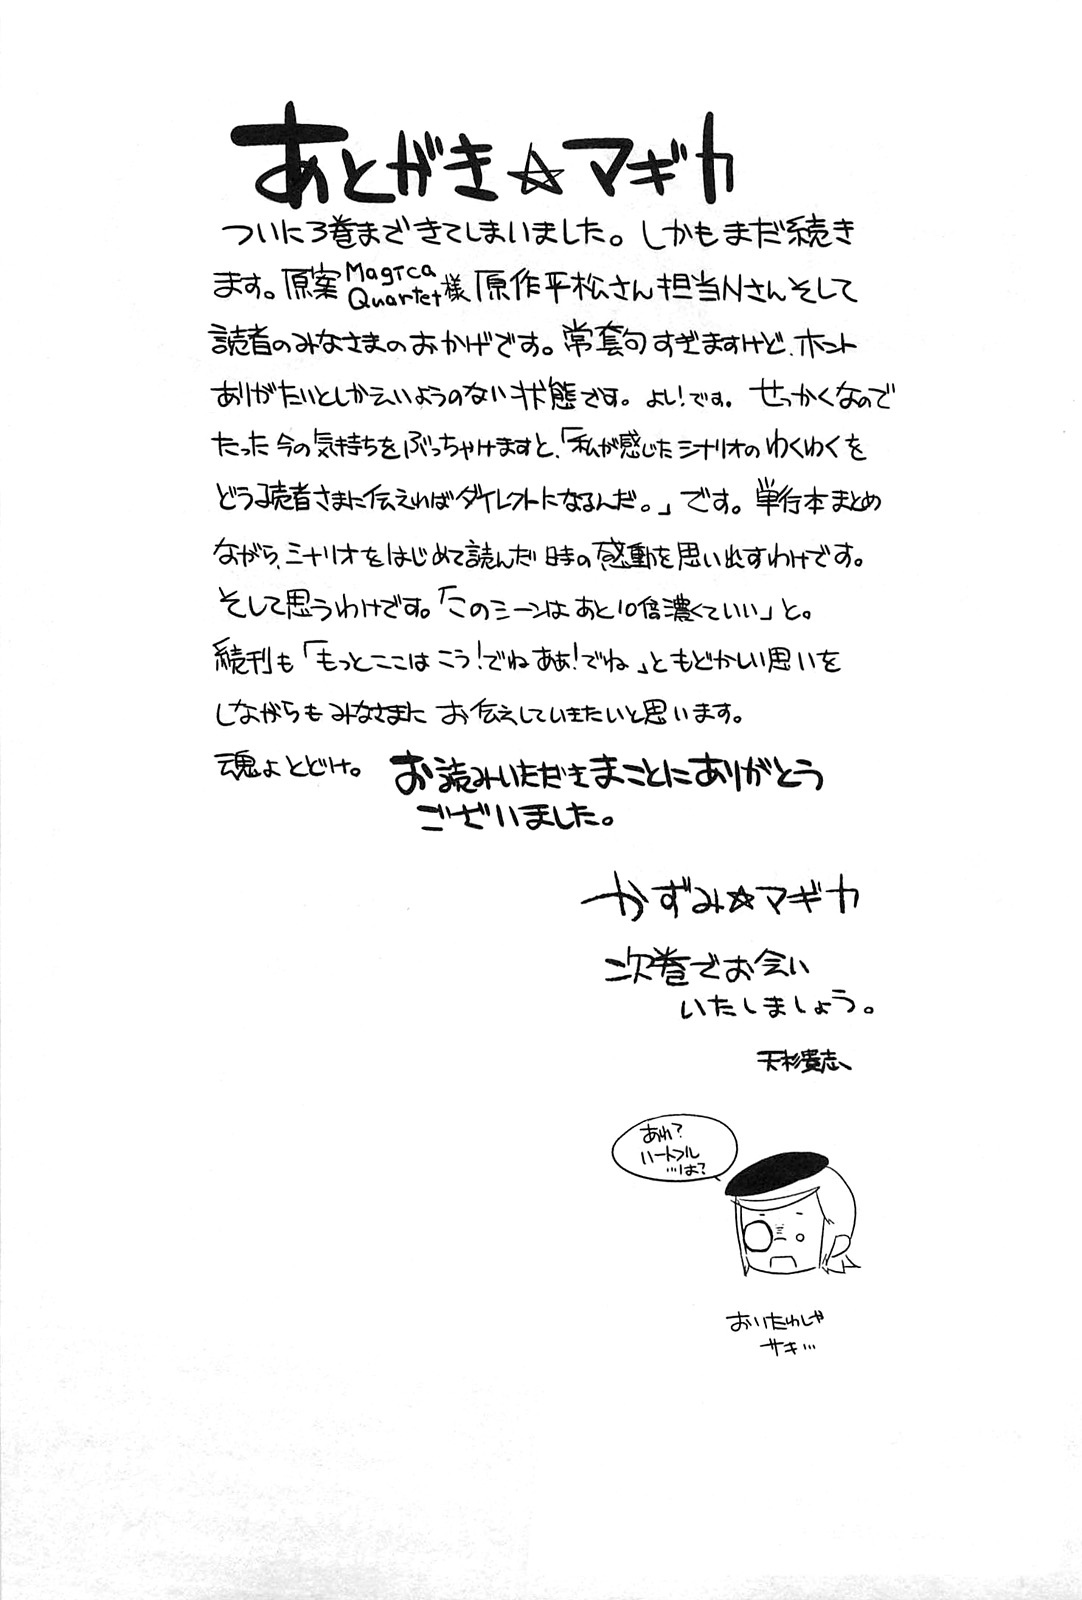 あとがき☆マギカ
ついに3巻まできてしまいました。しかもまだ続き
ます。原案Magica Quartet様 原作平松さん 担当Nさんそして
読者のみなさまのおかげです。常套句すぎますけど、ホント
ありがたいとしかえいようのない状態です。よし!です。せっかくなので
たった今の気持ちをぶっちゃけますと、「私が感じたシナリオのわくわくを
どう読者さまに伝えればダイレクトになるんだ。」です。単行本まとめ
ながら、シナリオをはじめて読んだ時の感動を思いだすわけです。
そして思うわけです。「このシーンはあと10倍濃くていい」と。
続刊も「もっとここはこう!でねああ!でね」ともどかしい思いを
しながらもみなさまにお伝えしていきたいと思います。
魂よとどけ。お読みいただきまことにありがとう
ございました。
かずみ☆マギカ
次巻でお会い
いたしましょう。
天杉貴志
あれ?
ハートフル
…は?
おいたわしや
サキ…